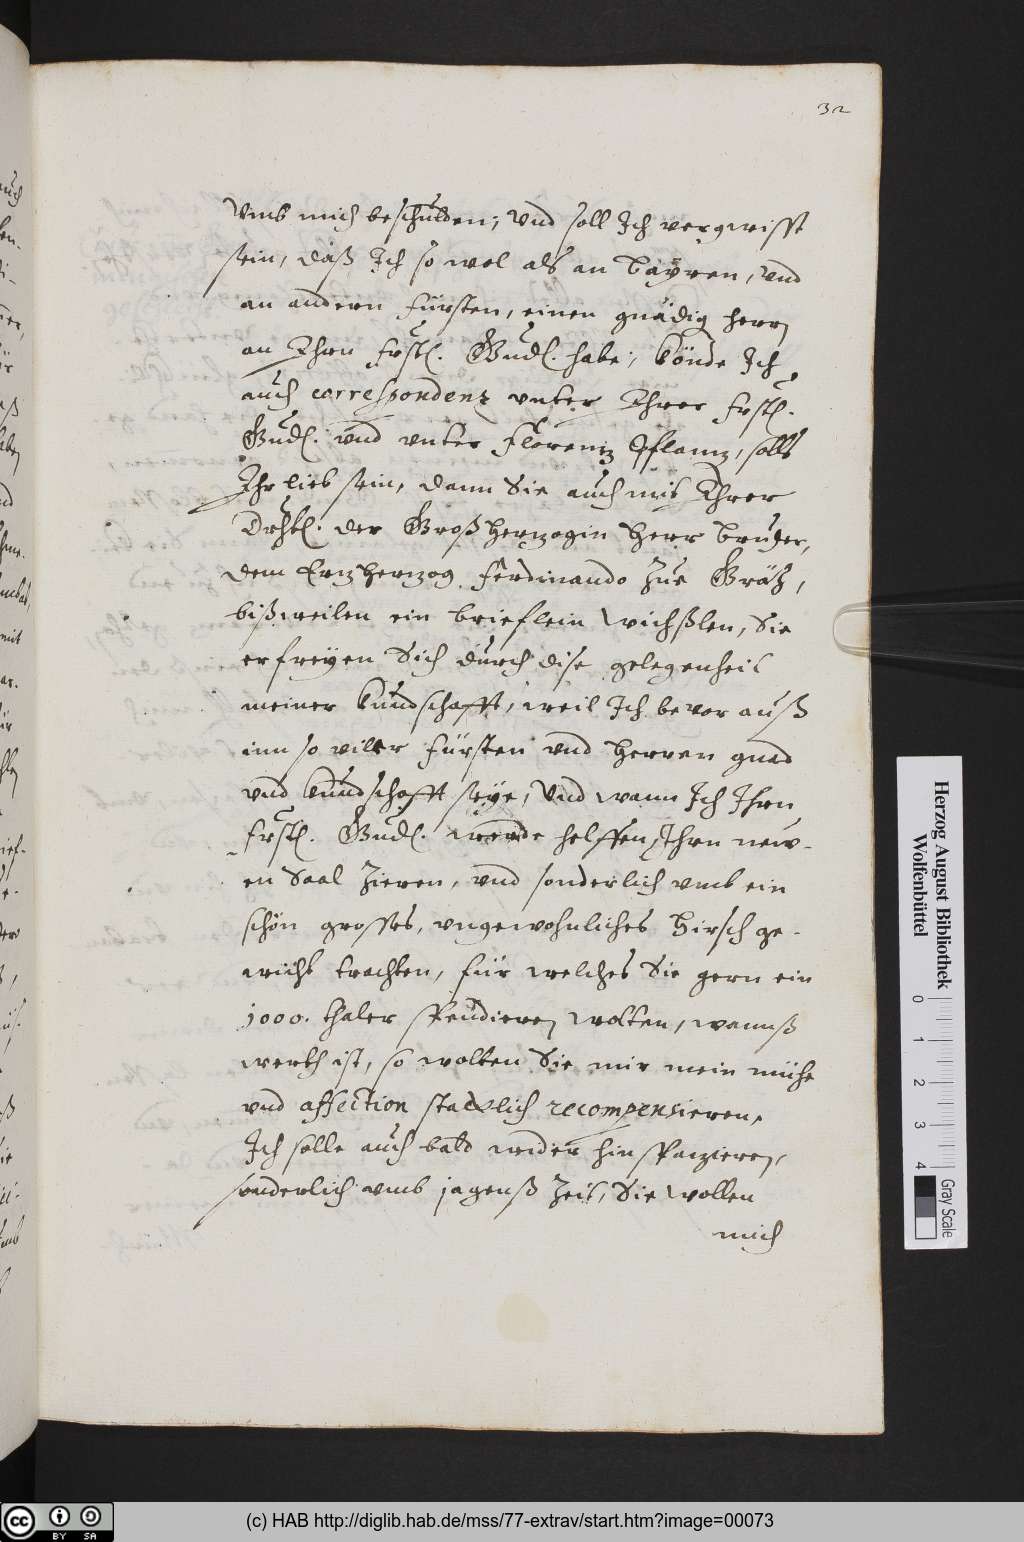 32
Vmb mich beschulden; Vnd soll Ich vergwisst
sein, daß Ich so wol als an Bäyren, Vnd
an andern Fürsten, einen gnädig herrn
an Ihrn frstl. Gndl. habe; könde Ich
auch correspondenz vnter Ihrer frstl.
Gndl. vnd vnter Florentz pflantz, solls
Ihr lieb sein, dann Sie auch mit Ihrer
Drhtl. der Großhertzogin Herr Bruder,
dem Ertzhertzog Ferdinando zue Grätz,
bißweilen ein brieflein wichßlen, Sie
erfreyen Sich durch dise gelegenheit
meiner kundschafft, weil Ich bevor auß
inn so viler Fürsten vnd Herren gnad
vnd kundschafft seye; Vnd wann Ich Ihrn
frstl. Gndl. werde helffen, Ihrn new-
en Saal Zieren, vnd sonderlich vmb ein
schön grosses, vngewohnliches Hirsch ge-
wicht trachten, für welches Sie gern ein
1000. thaler spendieren wolten, wannß
werth ist, so wolten Sie mir mein mühe
vnd affection stattlich recompensieren,
Ich solle auch bald wider hin spatzieren,
sonderlich vmb jagenß Zeit, Sie wollen
mich
Herzog August Bibliothek
Wolfenbüttel
0 1 2 3 4
Gray Scale
cc BY SA
(c) HAB http://diglib.hab.de/mss/77-extrav/start.htm?image=00073